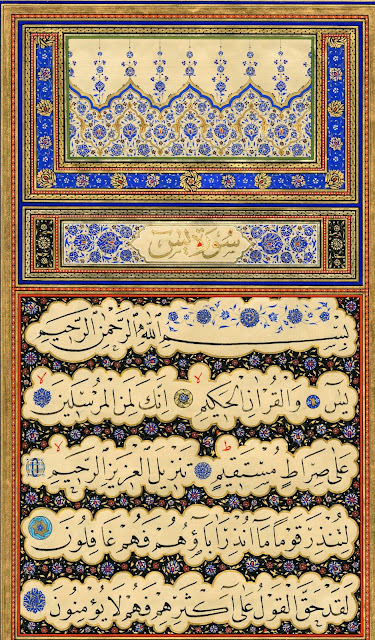 سورة يس
بِسْمِ اللَّهِ الرَّحْمَنِ الرَّحِيمِ
يس وَالْقُرْآنِ الْحَكِيمِ إِنَّكَ لَمِنَ الْمُرْسَلِينَ
عَلَى صِرَاطٍ مُسْتَقِيمٍ تَنْزِيلَ الْعَزِيزِ الرَّحِيمِ
لِتُنْذِرَ قَوْمًا مَا أُنْذِرَ آبَاؤُهُمْ فَهُمْ غَافِلُونَ
لَقَدْ حَقَّ الْقَوْلُ عَلَى أَكْثَرِهِمْ فَهُمْ لَا يُؤْمِنُونَ